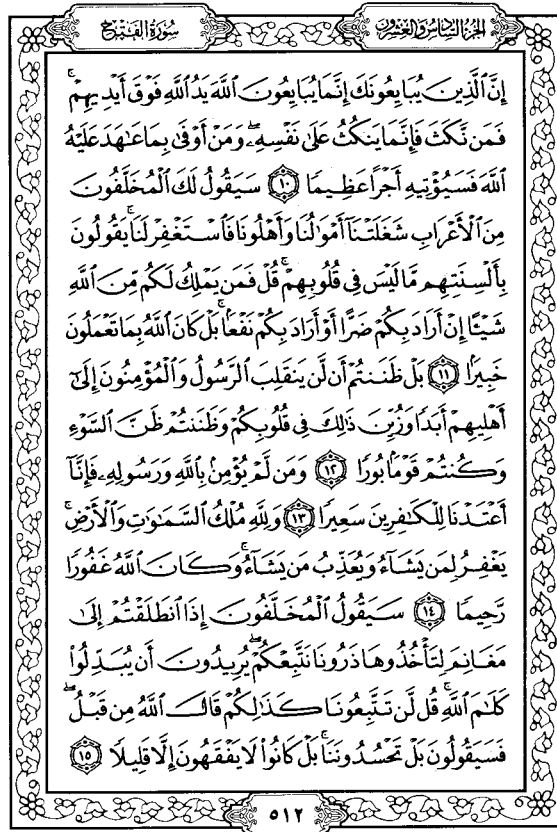 سُورَةُ الفَتْحِ
الجُزءُ السَّادِسُ وَالعِشْرُونَ
إِنَّ ٱلَّذِينَ يُبَايِعُونَكَ إِنَّمَا يُبَايِعُونَ ٱللَّهَ يَدُ ٱللَّهِ فَوْقَ أَيْدِيهِمْ ۚ
فَمَن نَّكَثَ فَإِنَّمَا يَنكُثُ عَلَىٰ نَفْسِهِۦ ۖ وَمَنْ أَوْفَىٰ بِمَا عَٰهَدَ عَلَيْهُ
ٱللَّهَ فَسَيُؤْتِيهِ أَجْرًا عَظِيمًا ١٠ سَيَقُولُ لَكَ ٱلْمُخَلَّفُونَ
مِنَ ٱلْأَعْرَابِ شَغَلَتْنَآ أَمْوَٰلُنَا وَأَهْلُونَا فَٱسْتَغْفِرْ لَنَا ۚ يَقُولُونَ
بِأَلْسِنَتِهِم مَّا لَيْسَ فِى قُلُوبِهِمْ ۚ قُلْ فَمَن يَمْلِكُ لَكُم مِّنَ ٱللَّهِ
شَيْـًٔا إِنْ أَرَادَ بِكُمْ ضَرًّا أَوْ أَرَادَ بِكُمْ نَفْعًۢا ۚ بَلْ كَانَ ٱللَّهُ بِمَا تَعْمَلُونَ
خَبِيرًۢا ١١ بَلْ ظَنَنتُمْ أَن لَّن يَنقَلِبَ ٱلرَّسُولُ وَٱلْمُؤْمِنُونَ إِلَىٰٓ
أَهْلِيهِمْ أَبَدًا وَزُيِّنَ ذَٰلِكَ فِى قُلُوبِكُمْ وَظَنَنتُمْ ظَنَّ ٱلسَّوْءِ
وَكُنتُمْ قَوْمًۢا بُورًا ١٢ وَمَن لَّمْ يُؤْمِنۢ بِٱللَّهِ وَرَسُولِهِۦ فَإِنَّآ
أَعْتَدْنَا لِلْكَٰفِرِينَ سَعِيرًا ١٣ وَلِلَّهِ مُلْكُ ٱلسَّمَٰوَٰتِ وَٱلْأَرْضِ ۚ
يَغْفِرُ لِمَن يَشَآءُ وَيُعَذِّبُ مَن يَشَآءُ ۚ وَكَانَ ٱللَّهُ غَفُورًا
رَّحِيمًا ١٤ سَيَقُولُ ٱلْمُخَلَّفُونَ إِذَا ٱنطَلَقْتُمْ إِلَىٰ
مَغَانِمَ لِتَأْخُذُوهَا ذَرُونَا نَتَّبِعْكُمْ ۖ يُرِيدُونَ أَن يُبَدِّلُوا۟
كَلَٰمَ ٱللَّهِ ۚ قُل لَّن تَتَّبِعُونَا كَذَٰلِكُمْ قَالَ ٱللَّهُ مِن قَبْلُ ۖ
فَسَيَقُولُونَ بَلْ تَحْسُدُونَنَا ۚ بَلْ كَانُوا۟ لَا يَفْقَهُونَ إِلَّا قَلِيلًا ١٥
٥١٢